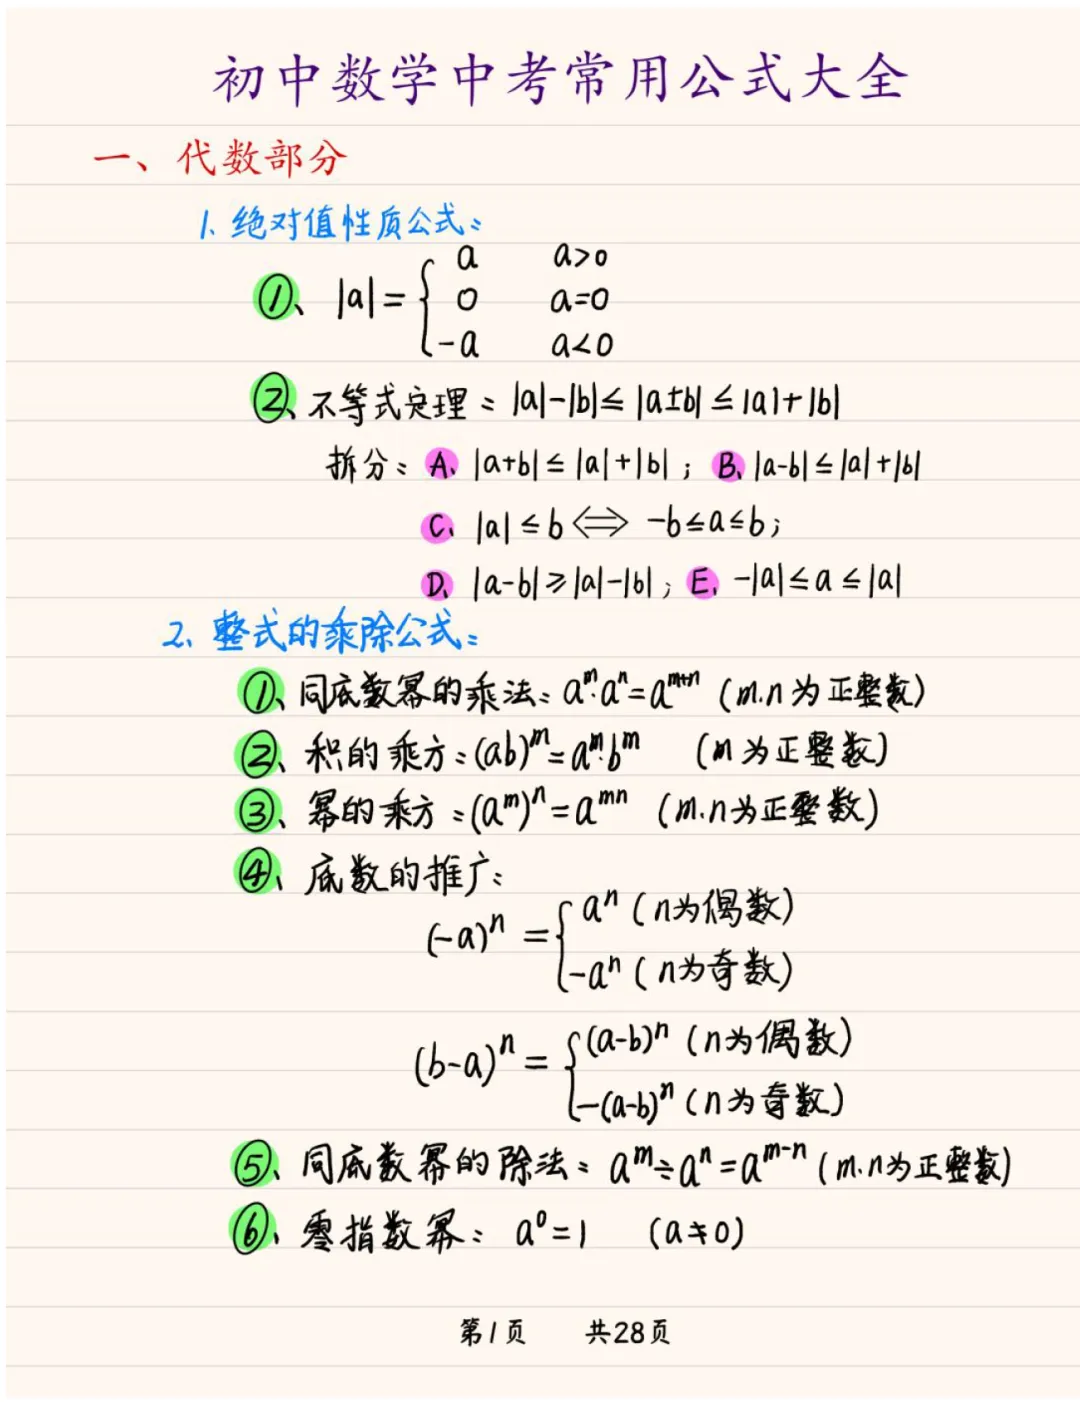 初中数学中考常用公式大全
一、代数部分
1. 绝对值性质公式:
①、|a|={ a a>0
0 a=0
-a a<0
②、不等式定理:|a|-|b|≤|a±b|≤|a|+|b|
拆分:A、|a+b|≤|a|+|b|;B、|a-b|≤|a|+|b|
C、|a|≤b⇔-b≤a≤b;
D、|a-b|≥|a|-|b|;E、-|a|≤a≤|a|
2、整式的乘除公式:
①、同底数幂的乘法:aᵐ·aⁿ=aᵐ⁺ⁿ(m.n为正整数)
②、积的乘方:(ab)ᵐ=aᵐ·bᵐ (m为正整数)
③、幂的乘方:(aᵐ)ⁿ=aᵐⁿ (m.n为正整数)
④、底数的推广:
(-a)ⁿ={ aⁿ(n为偶数)
-aⁿ(n为奇数)
(b-a)ⁿ={ (a-b)ⁿ(n为偶数)
-(a-b)ⁿ(n为奇数)
⑤、同底数幂的除法:aᵐ÷aⁿ=aᵐ⁻ⁿ(m.n为正整数)
⑥、零指数幂:a⁰=1 (a≠0)
第1页 共28页